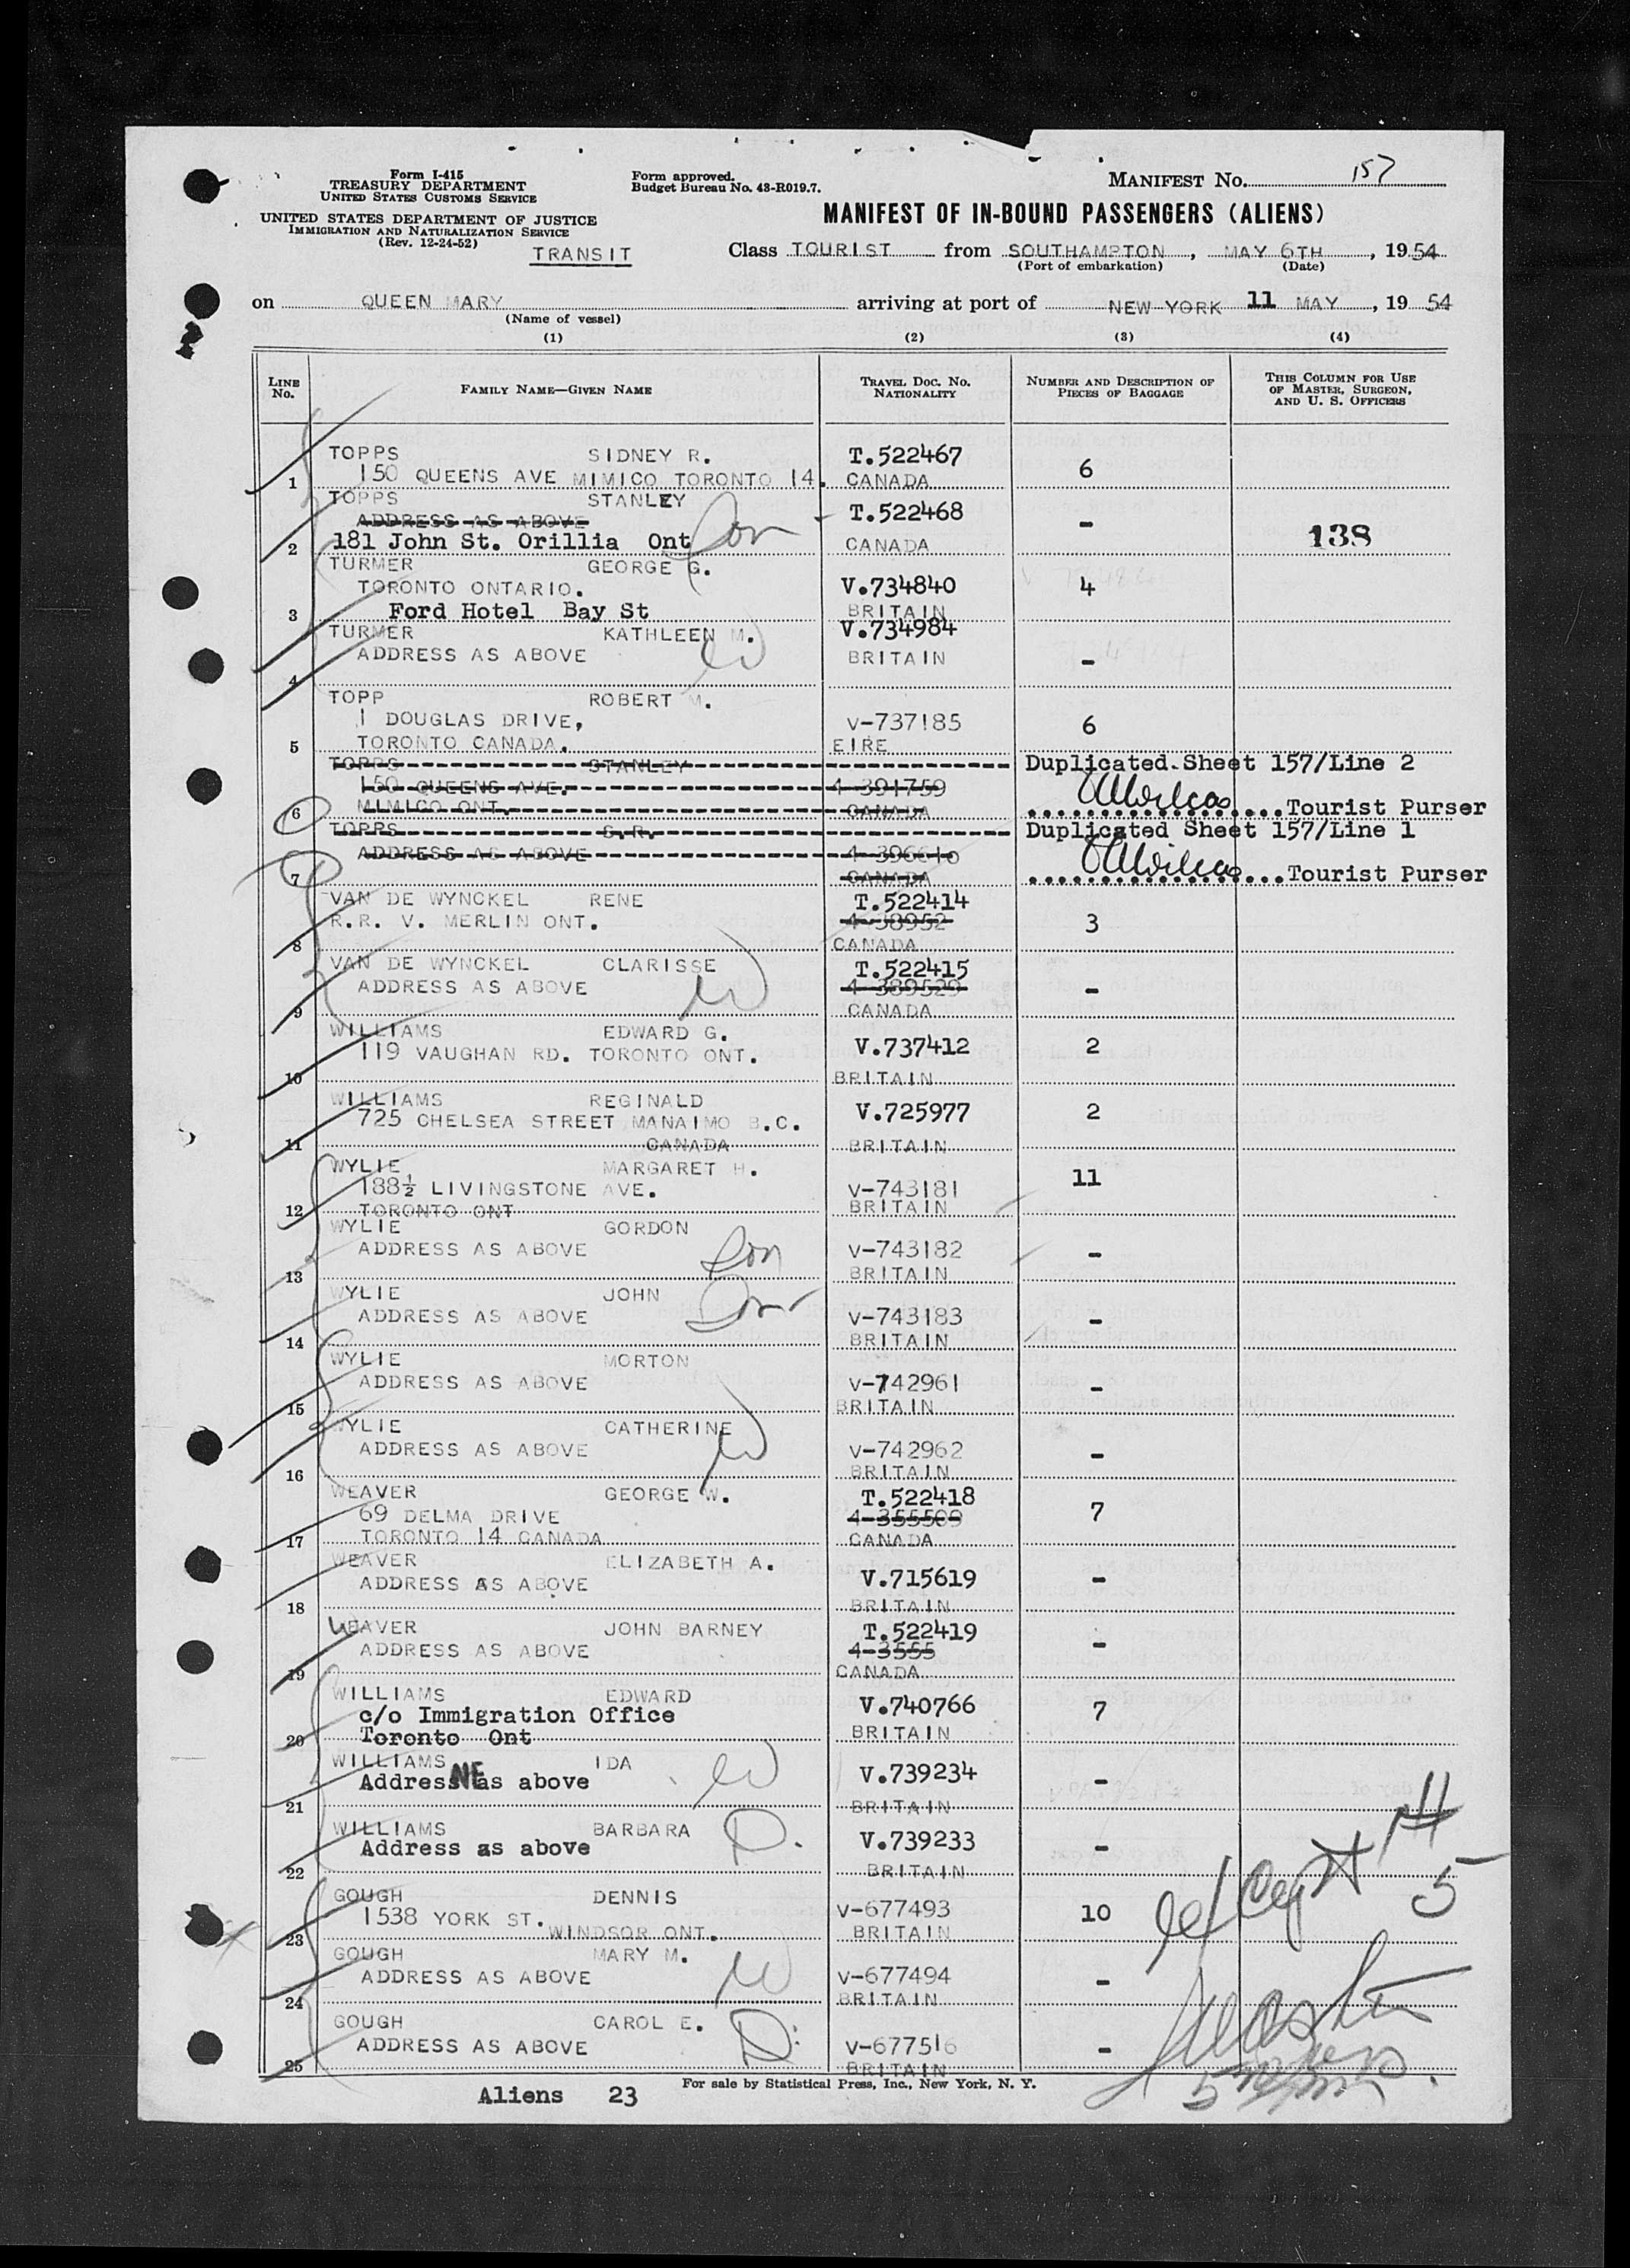 Form I-415
TREASURY DEPARTMENT
UNITED STATES CUSTOMS SERVICE
UNITED STATES DEPARTMENT OF JUSTICE
IMMIGRATION AND NATURALIZATION SERVICE
(Rev. 12-24-52)
TRANSIT
Form approved.
Budget Bureau No. 43-R019.7.
MANIFEST NO. 157
MANIFEST OF IN-BOUND PASSENGERS (ALIENS)
Class TOURIST from SOUTHAMPTON, MAY 6TH, 1954
(Port of embarkation) (Date)
on QUEEN MARY arriving at port of NEW YORK 11 MAY, 19 54
(Name of vessel)
(1) (2) (3) (4)
LINE NO. FAMILY NAME—GIVEN NAME TRAVEL DOC. NO. NATIONALITY NUMBER AND DESCRIPTION OF PIECES OF BAGGAGE THIS COLUMN FOR USE OF MASTER, SURGEON, AND U. S. OFFICERS
TOPPS SIDNEY R. T.522467 6
1 150 QUEENS AVE MIMICO TORONTO 14. CANADA
TOPPS STANLEY T.522468 -
ADDRESS AS ABOVE Son 138
2 181 John St. Orillia Ont CANADA
TURMER GEORGE G.
TORONTO ONTARIO. V.734840 4
3 Ford Hotel Bay St BRITAIN
TURMER KATHLEEN M. V.734984
ADDRESS AS ABOVE W BRITAIN -
4
TOPP ROBERT M.
1 DOUGLAS DRIVE, V-737185 6
5 TORONTO CANADA. EIRE
TOPPS STANLEY Duplicated Sheet 157/Line 2
150 QUEENS AVE. 4-391759
6 MIMICO ONT. CANADA Tourist Purser
TOPPS S.R. Duplicated Sheet 157/Line 1
ADDRESS AS ABOVE 4-396610
7 CANADA Tourist Purser
VAN DE WYNCKEL RENE T.522414
R.R. V. MERLIN ONT. 4-38952 3
8 CANADA
VAN DE WYNCKEL CLARISSE T.522415
ADDRESS AS ABOVE W 4-389529 -
9 CANADA
WILLIAMS EDWARD G.
119 VAUGHAN RD. TORONTO ONT. V.737412 2
10 BRITAIN
WILLIAMS REGINALD
725 CHELSEA STREET MANAIMO B.C. V.725977 2
11 CANADA BRITAIN
WYLIE MARGARET H. 11
188½ LIVINGSTONE AVE. V-743181
12 TORONTO ONT BRITAIN
WYLIE GORDON
ADDRESS AS ABOVE Son V-743182 -
13 BRITAIN
WYLIE JOHN Son
ADDRESS AS ABOVE V-743183 -
14 BRITAIN
WYLIE MORTON
ADDRESS AS ABOVE V-742961 -
15 BRITAIN
WYLIE CATHERINE W
ADDRESS AS ABOVE V-742962 -
16 BRITAIN
WEAVER GEORGE W. T.522418
69 DELMA DRIVE 4-355509 7
17 TORONTO 14 CANADA CANADA
WEAVER ELIZABETH A.
ADDRESS AS ABOVE V.715619 -
18 BRITAIN
WEAVER JOHN BARNEY T.522419
ADDRESS AS ABOVE 4-3555 -
19 CANADA
WILLIAMS EDWARD V.740766 7
c/o Immigration Office
20 Toronto Ont BRITAIN
WILLIAMS IDA W
Address NE as above V.739234 -
21 BRITAIN
WILLIAMS BARBARA D.
Address as above V.739233 -
22 BRITAIN
GOUGH DENNIS
1538 YORK ST. V-677493 10
23 WINDSOR ONT. BRITAIN
GOUGH MARY M.
ADDRESS AS ABOVE W V-677494 -
24 BRITAIN
GOUGH CAROL E. D.
ADDRESS AS ABOVE V-677516 -
25 BRITAIN
Aliens 23
For sale by Statistical Press, Inc., New York, N. Y.